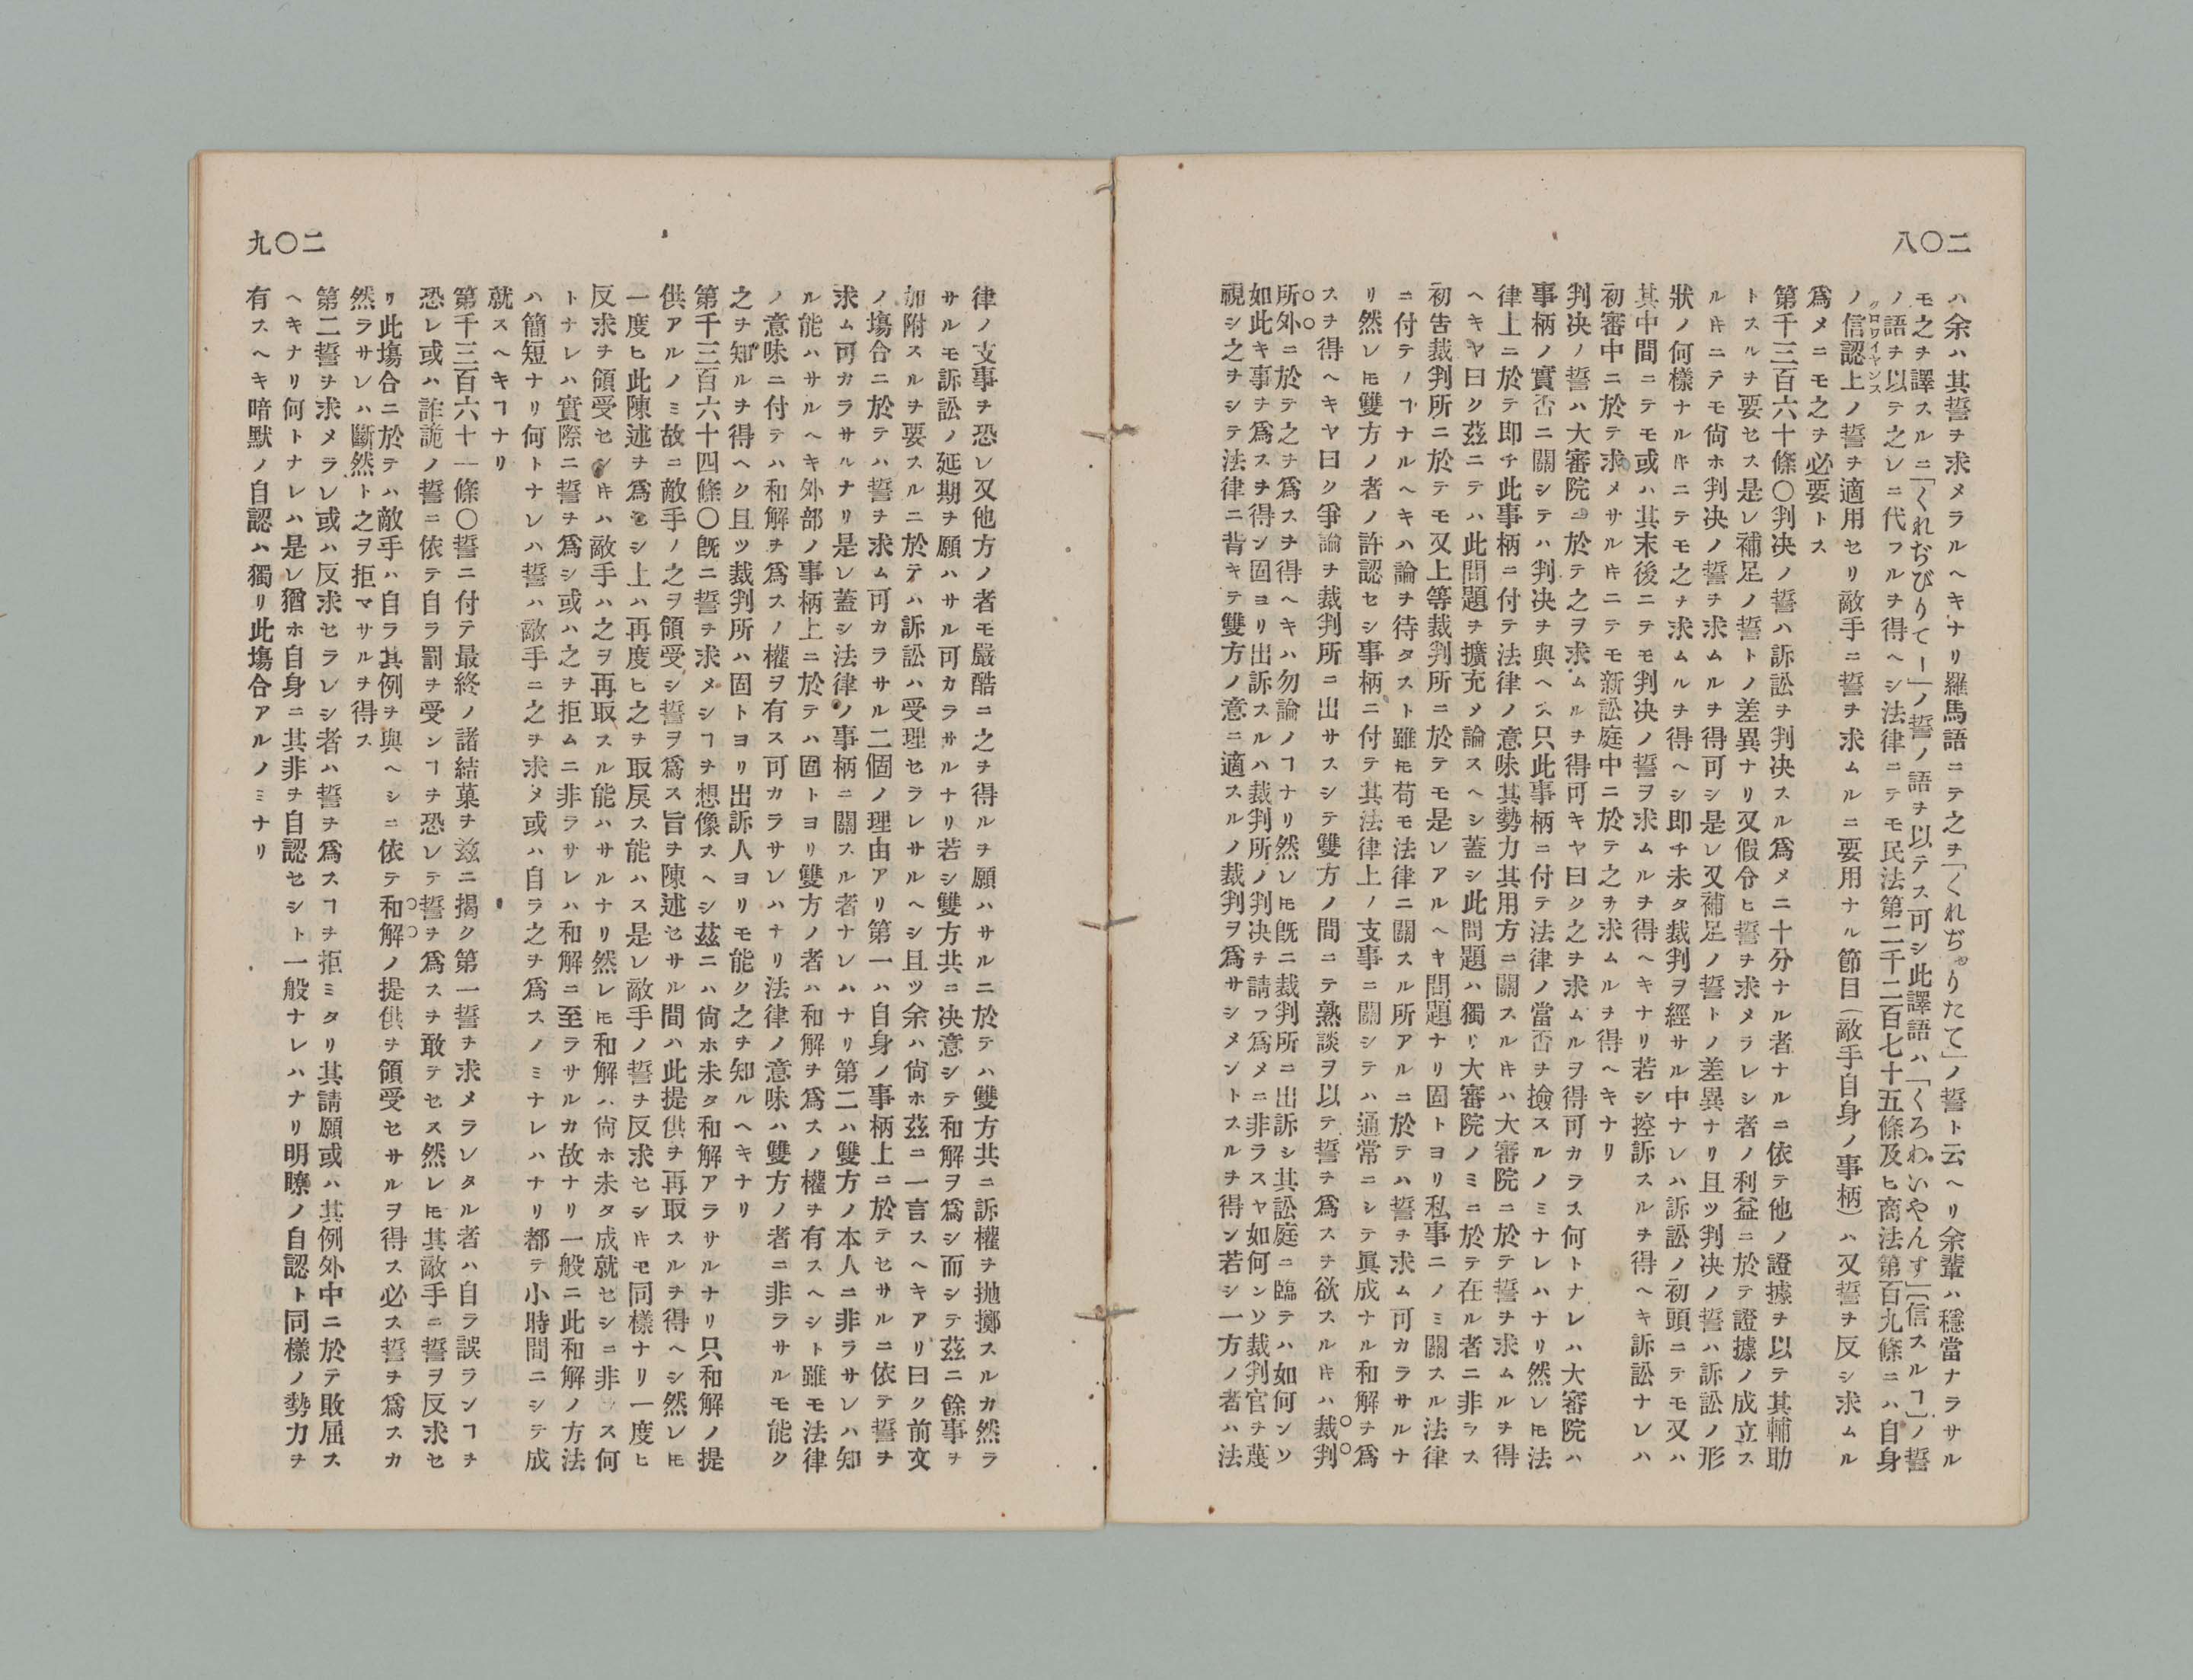 二〇八
ハ余ハ其誓ヲ求メラルヘキナリ羅馬語ニテ之ヲ「くれぢゃりたて」ノ誓ト云ヘリ余輩ハ穩當ナラサル
モ之ヲ譯スルニ「くれぢびりてー」ノ誓ノ語ヲ以テス可シ此譯語ハ「くろわいやんす」「信スルヿ」ノ誓
ノ語ヲ以テ之レニ代フルヲ得ヘシ法律ニテモ民法第二千二百七十五條及ヒ商法第百九條ニハ自身
ノ信認上ノ誓ヲ適用セリ敵手ニ誓ヲ求ムルニ要用ナル節目(敵手自身ノ事柄)ハ又誓ヲ反シ求ムル
クロワイヤンス
爲メニモ之ヲ必要トス
第千三百六十條〇判决ノ誓ハ訴訟ヲ判决スル爲メニ十分ナル者ナルニ依テ他ノ證據ヲ以テ其輔助
トスルヲ要セス是レ補足ノ誓トノ差異ナリ又假令ヒ誓ヲ求メラレシ者ノ利益ニ於テ證據ノ成立ス
ルキニテモ尙ホ判决ノ誓ヲ求ムルヲ得可シ是レ又補足ノ誓トノ差異ナリ且ツ判决ノ誓ハ訴訟ノ形
狀ノ何樣ナルキニテモ之ヲ求ムルヲ得ヘシ即チ未タ裁判ヲ經サル中ナレハ訴訟ノ初頭ニテモ又ハ
其中間ニテモ或ハ其末後ニテモ判决ノ誓ヲ求ムルヲ得ヘキナリ若シ控訴スルヲ得ヘキ訴訟ナレハ
初審中ニ於テ求メサルキニテモ新訟庭中ニ於テ之ヲ求ムルヲ得ヘキナリ
判决ノ誓ハ大審院ニ於テ之ヲ求ムルヲ得可キヤ曰ク之ヲ求ムルヲ得可カラス何トナレハ大審院ハ
事柄ノ實否ニ關シテハ判决ヲ與ヘス只此事柄ニ付テ法律ノ當否ヲ撿スルノミナレハナリ然レ𪜈法
律上ニ於テ即チ此事柄ニ付テ法律ノ意味其勢力其用方ニ關スルキハ大審院ニ於テ誓ヲ求ムルヲ得
ヘキヤ曰ク茲ニテハ此問題ヲ擴充メ論スヘシ蓋シ此問題ハ獨リ大審院ノミニ於テ在ル者ニ非ラス
初告裁判所ニ於テモ又上等裁判所ニ於テモ是レアルヘキ問題ナリ固トヨリ私事ニノミ關スル法律
ニ付テノヿナルヘキハ論ヲ待タスト雖𪜈苟モ法律ニ關スル所アルニ於テハ誓ヲ求ム可カラサルナ
リ然レ𪜈雙方ノ者ノ許認セシ事柄ニ付テ其法律上ノ支事ニ關シテハ通常ニシテ眞成ナル和解ヲ爲
スヲ得ヘキヤ曰ク爭論ヲ裁判所ニ出サスシテ雙方ノ間ニテ熟談ヲ以テ誓ヲ爲スヲ欲スルキハ裁判
所外ニ於テ之ヲ爲スヲ得ヘキハ勿論ノヿナリ然レ𪜈旣ニ裁判所ニ出訴シ其訟庭ニ臨テハ如何ンソ
如此キ事ヲ爲スヲ得ン固ヨリ出訴スルハ裁判所ノ判决ヲ請フ爲メニ非ラスヤ如何ンソ裁判官ヲ蔑
視シ之ヲシテ法律ニ背キテ雙方ノ意ニ適スルノ裁判ヲ爲サシメントスルヲ得ン若シ一方ノ者ハ法
二〇九
律ノ支事ヲ恐レ又他方ノ者モ嚴酷ニ之ヲ得ルヲ願ハサルニ於テハ雙方共ニ訴權ヲ抛擲スルカ然ラ
サルモ訴訟ノ延期ヲ願ハサル可カラサルナリ若シ雙方共ニ决意シテ和解ヲ爲シ而シテ茲ニ餘事ヲ
加附スルヲ要スルニ於テハ訴訟ハ受理セラレサルヘシ且ツ余ハ尙ホ茲ニ一言スヘキアリ曰ク前文
ノ塲合ニ於テハ誓ヲ求ム可カラサル二個ノ理由アリ第一ハ自身ノ事柄上ニ於テセサルニ依テ誓ヲ
求ム可カラサルナリ是レ蓋シ法律ノ事柄ニ關スル者ナレハナリ第二ハ雙方ノ本人ニ非ラサレハ知
ル能ハサルヘキ外部ノ事柄上ニ於テハ固トヨリ雙方ノ者ハ和解ヲ爲スノ權ヲ有スヘシト雖モ法律
ノ意味ニ付テハ和解ヲ爲スノ權ヲ有ス可カラサレハナリ法律ノ意味ハ雙方ノ者ニ非ラサルモ能ク
之ヲ知ルヲ得ヘク且ツ裁判所ハ固トヨリ出訴人ヨリモ能ク之ヲ知ルヘキナリ
第千三百六十四條〇旣ニ誓ヲ求メシヿヲ想像スヘシ茲ニハ尙ホ未タ和解アラサルナリ只和解ノ提
供アルノミ故ニ敵手ノ之ヲ領受シ誓ヲ爲ス旨ヲ陳述セサル間ハ此提供ヲ再取スルヲ得ヘシ然レ𪜈
一度ヒ此陳述ヲ爲セシ上ハ再度ヒ之ヲ取戾ス能ハス是レ敵手ノ誓ヲ反求セシキモ同樣ナリ一度ヒ
反求ヲ領受セシキハ敵手ハ之ヲ再取スル能ハサルナリ然レ𪜈和解ハ尙ホ未タ成就セシニ非ラス何
トナレハ實際ニ誓ヲ爲シ或ハ之ヲ拒ムニ非ラサレハ和解ニ至ラサルカ故ナリ一般ニ此和解ノ方法
ハ簡短ナリ何トナレハ誓ハ敵手ニ之ヲ求メ或ハ自ラ之ヲ爲スノミナレハナリ都テ小時間ニシテ成
就スヘキヿナリ
第千三百六十一條〇誓ニ付テ最終ノ諸結菓ヲ茲ニ揭ク第一誓ヲ求メラレタル者ハ自ラ誤ランヿヲ
恐レ或ハ詐詭ノ誓ニ依テ自ラ罰ヲ受ンヿヲ恐レテ誓ヲ爲スヲ敢テセス然レ𪜈其敵手ニ誓ヲ反求セ
リ此塲合ニ於テハ敵手ハ自ラ其例ヲ與ヘシニ依テ和解ノ提供ヲ領受セサルヲ得ス必ス誓ヲ爲スカ
然ラサレハ斷然ト之ヲ拒マサルヲ得ス
第二誓ヲ求メラレ或ハ反求セラレシ者ハ誓ヲ爲スヿヲ拒ミタリ其請願或ハ其例外中ニ於テ敗屈ス
ヘキナリ何トナレハ是レ猶ホ自身ニ其非ヲ自認セシト一般ナレハナリ明瞭ノ自認ト同樣ノ勢力ヲ
有スヘキ暗默ノ自認ハ獨リ此塲合アルノミナリ